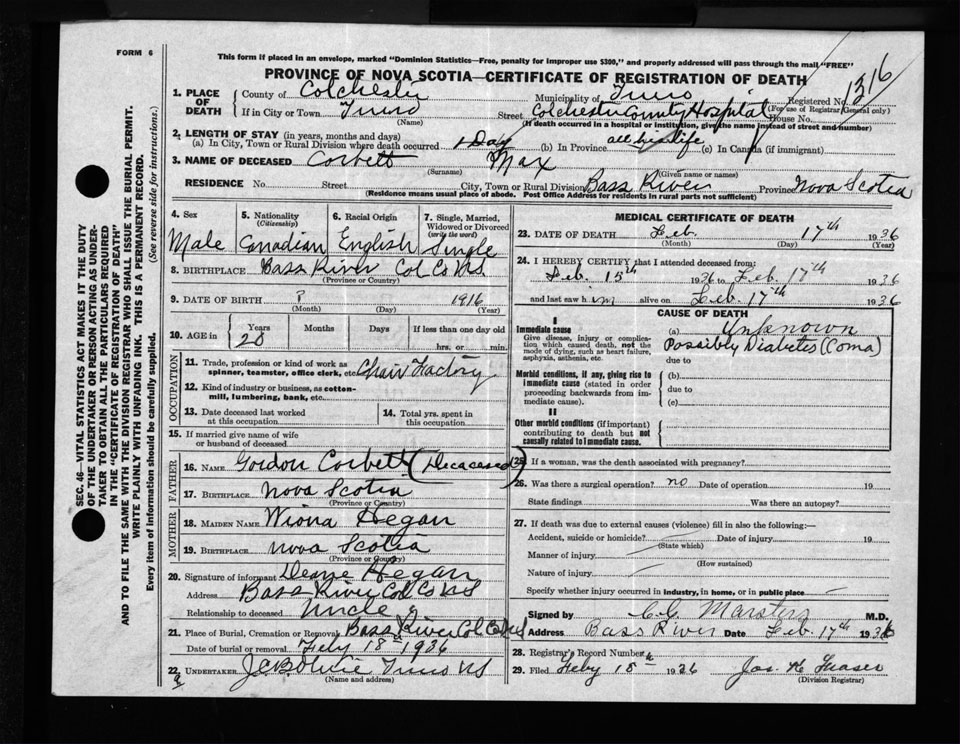 FORM 6
This form if placed in an envelope, marked "Dominion Statistics—Free, penalty for improper use $300," and properly addressed will pass through the mail "FREE"
PROVINCE OF NOVA SCOTIA—CERTIFICATE OF REGISTRATION OF DEATH
1316
1. PLACE OF DEATH
County of Colchester Municipality of Truro Registered No.
(For use of Registrar General only)
If in City or Town Truro Street Colchester County Hospital House No.
(Name) (If death occurred in a hospital or institution, give the name instead of street and number)
2. LENGTH OF STAY (in years, months and days)
(a) In City, Town or Rural Division where death occurred 1 Day (b) In Province all his life (c) In Canada (if immigrant)
3. NAME OF DECEASED Corbett Max
(Surname) (Given name or names)
RESIDENCE No. Street City, Town or Rural Division Bass River Province Nova Scotia
(Residence means usual place of abode. Post Office Address for residents in rural parts not sufficient)
SEC. 46—VITAL STATISTICS ACT MAKES IT THE DUTY
OF THE UNDERTAKER OR PERSON ACTING AS UNDER-
TAKER TO OBTAIN ALL THE PARTICULARS REQUIRED
IN THE "CERTIFICATE OF REGISTRATION OF DEATH"
AND TO FILE THE SAME WITH THE DIVISION REGISTRAR WHO SHALL ISSUE THE BURIAL PERMIT.
WRITE PLAINLY WITH UNFADING INK. THIS IS A PERMANENT RECORD.
Every item of information should be carefully supplied. (See reverse side for instructions.)
4. Sex
Male
5. Nationality
(Citizenship)
Canadian
6. Racial Origin
English
7. Single, Married,
Widowed or Divorced
(write the word)
Single
8. BIRTHPLACE Bass River Col Co NS
(Province or Country)
9. DATE OF BIRTH ? 1916
(Month) (Day) (Year)
10. AGE in
Years Months Days If less than one day old
20 hrs. or min.
OCCUPATION
11. Trade, profession or kind of work as
spinner, teamster, office clerk, etc. Chair Factory
12. Kind of industry or business, as cotton-
mill, lumbering, bank, etc.
13. Date deceased last worked
at this occupation
14. Total yrs. spent in
this occupation
15. If married give name of wife
or husband of deceased
FATHER
16. NAME Gordon Corbett (Decaased)
17. BIRTHPLACE Nova Scotia
(Province or Country)
MOTHER
18. MAIDEN NAME Wiona Hegan
19. BIRTHPLACE Nova Scotia
(Province or Country)
20. Signature of informant Hegan
Address Bass River Col Co NS
Relationship to deceased Uncle
21. Place of Burial, Cremation or Removal Bass River Col Co NS
Date of burial or removal Feby 18th 1936
22. UNDERTAKER Truro NS
(Name and address)
MEDICAL CERTIFICATE OF DEATH
23. DATE OF DEATH Feb. 17th 1936
(Month) (Day) (Year)
24. I HEREBY CERTIFY that I attended deceased from:
Feb. 15th 1936 to Feb. 17th 1936
and last saw him alive on Feb. 17th 1936
CAUSE OF DEATH
I
Immediate cause
Give disease, injury or complica-
tion which caused death, not the
mode of dying, such as heart failure,
asphyxia, asthenia, etc.
(a) Unknown
Possibly Diabetes (Coma)
due to
Morbid conditions, if any, giving rise to
immediate cause (stated in order
proceeding backwards from im-
mediate cause).
(b)
due to
(c)
II
Other morbid conditions (if important)
contributing to death but not
causally related to immediate cause.
25. If a woman, was the death associated with pregnancy?
26. Was there a surgical operation? no Date of operation 19
State findings Was there an autopsy?
27. If death was due to external causes (violence) fill in also the following:—
Accident, suicide or homicide? Date of injury 19
(State which)
Manner of injury
(How sustained)
Nature of injury
Specify whether injury occurred in industry, in home, or in public place
Signed by C.G. Marsters M.D.
Address Bass River Date Feb. 17th 1936
28. Registrar's Record Number
29. Filed Feby 18th 1936 Jos. Fraser
(Division Registrar)